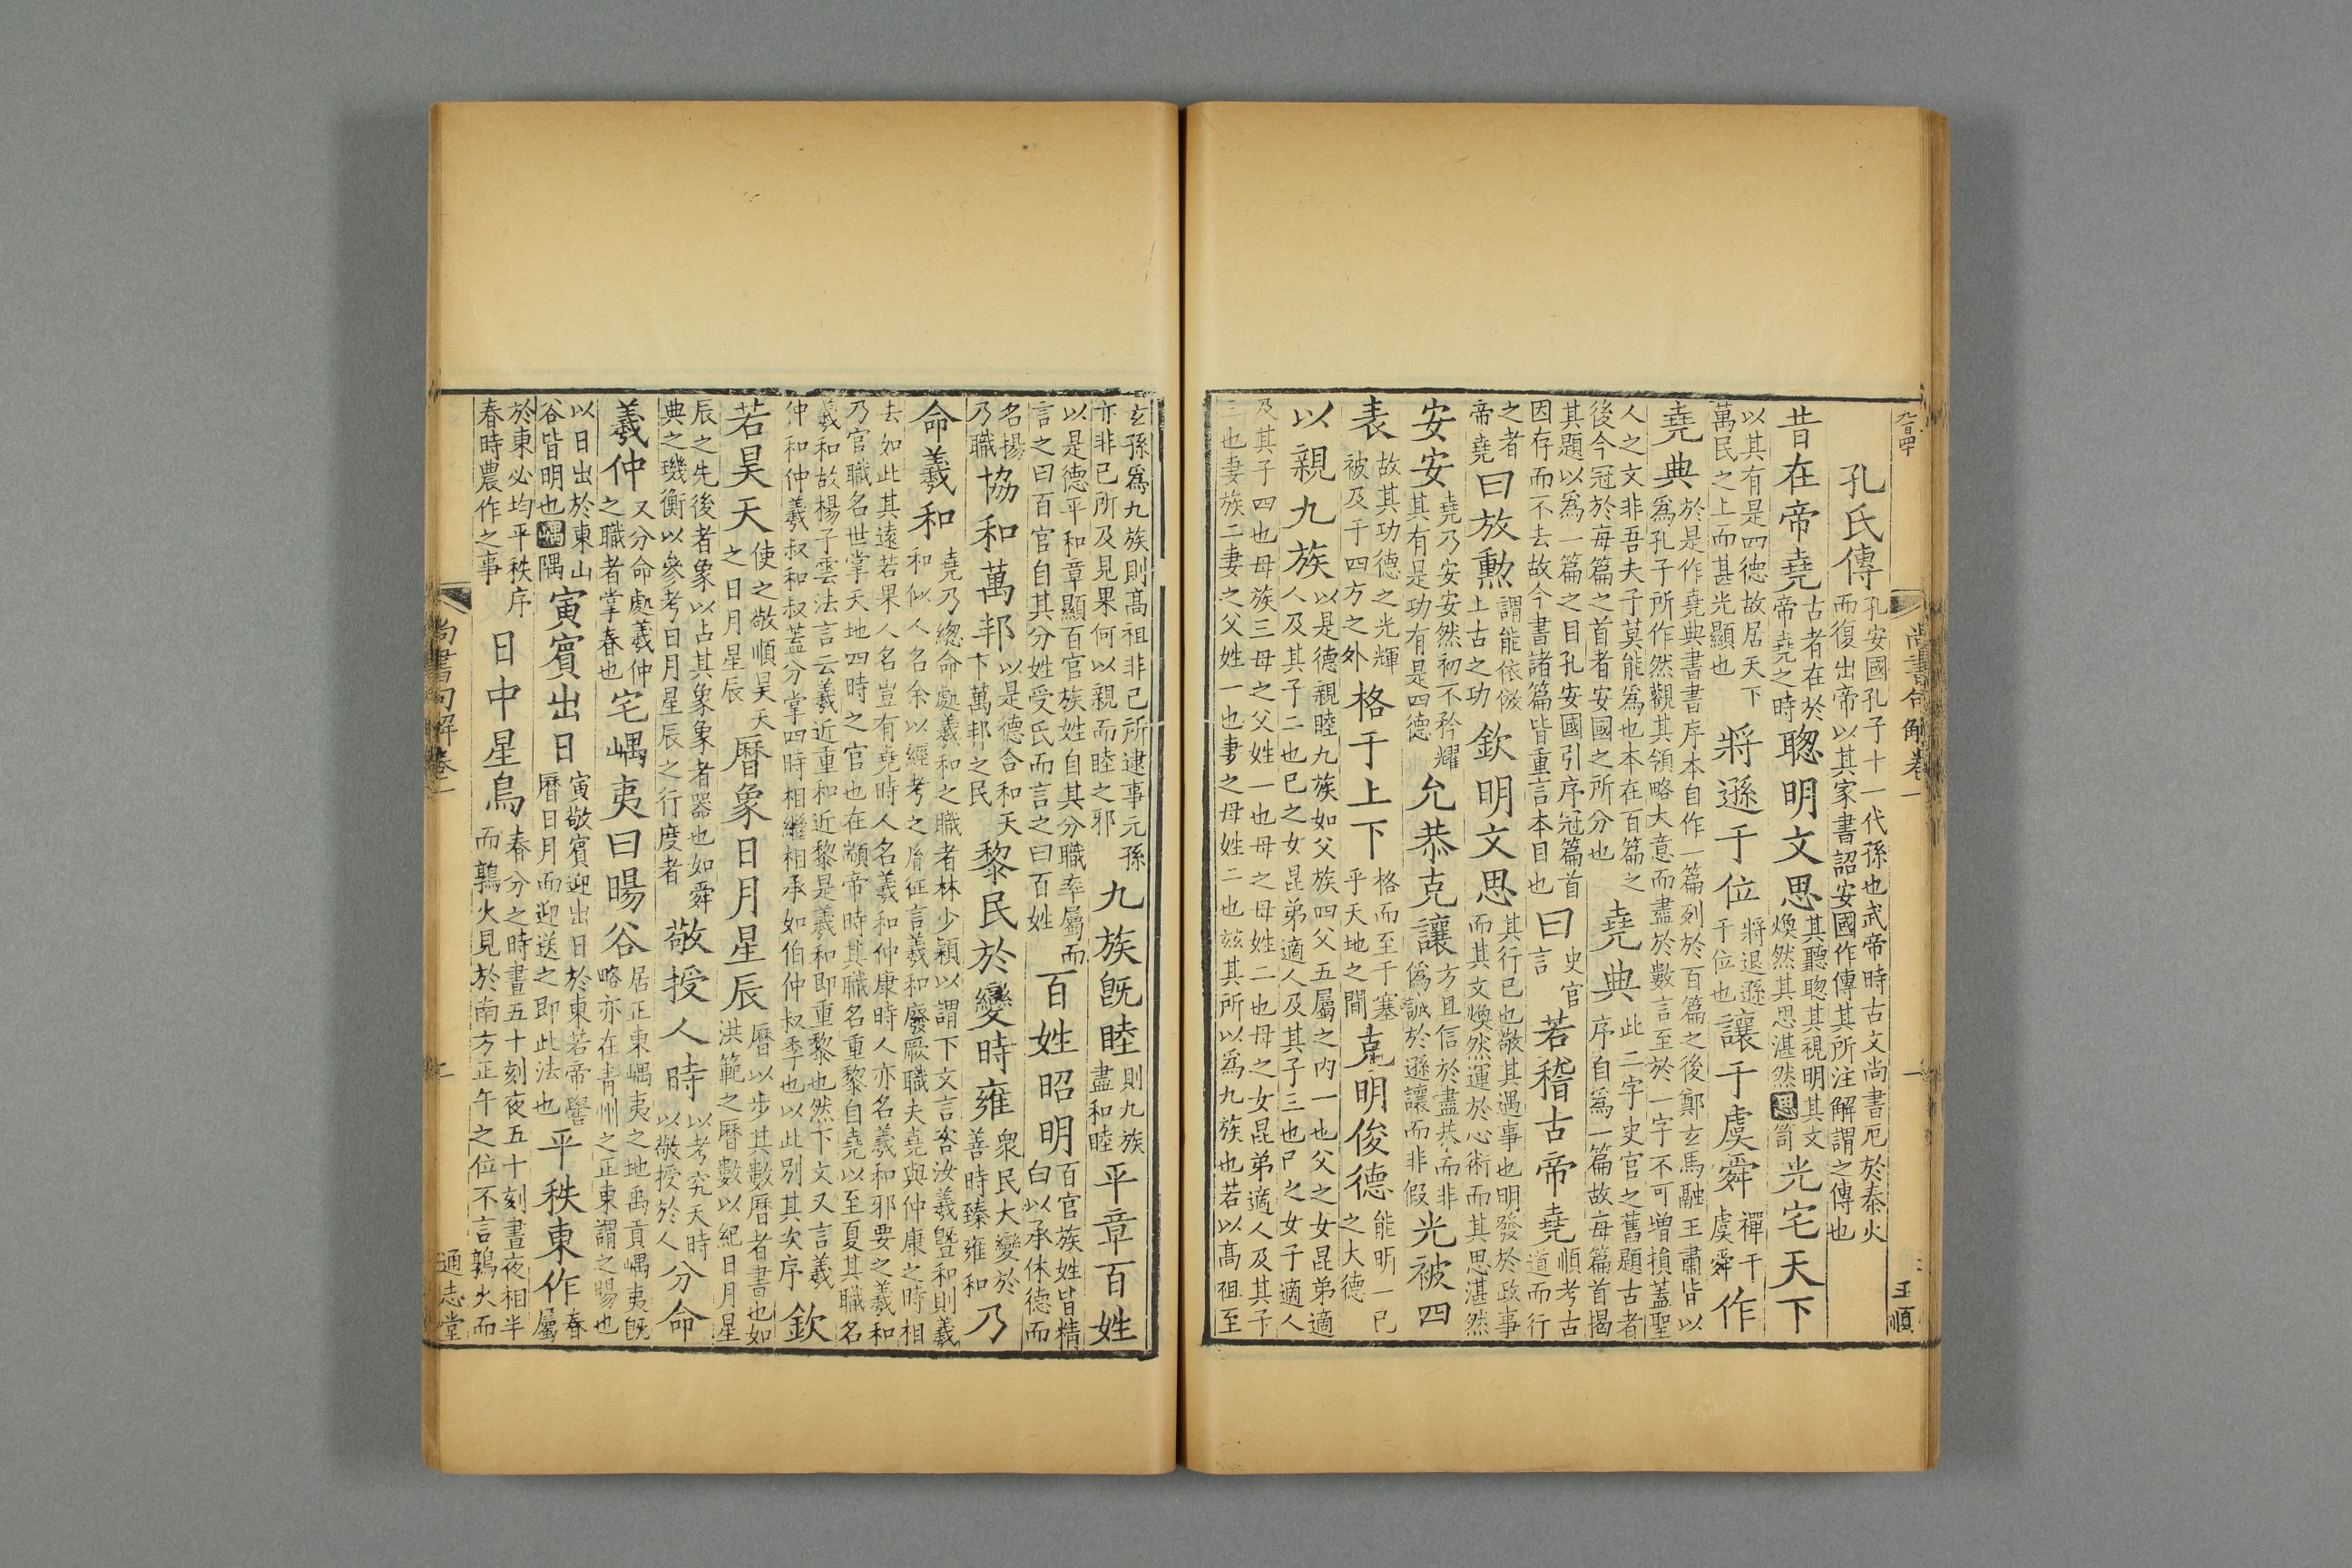 尚書句解卷一
一
王順
孔氏傳孔安國孔子十一代孫也武帝時古文尚書厄於秦火而復出帝以其家書詔安國作傳其所注解謂之傳也
昔在帝堯古者在於帝堯之時聦明文思其聽聦其視明其文煥然其思湛然思笥光宅天下
以其有是四德故居天下萬民之上而甚光顯也將遜于位將退遜于位也讓于虞舜禪于虞舜作
堯典於是作堯典書書序本自作一篇列於百篇之後鄭玄馬融王肅皆以爲孔子所作然觀其領略大意而盡於數言至於一字不可増損蓋聖
人之文非吾夫子莫能爲也本在百篇之後今冠於每篇之首者安國之所分也堯典此二字史官之舊題古者序自爲一篇故每篇首揭
其題以爲一篇之目孔安國引序冠篇首因存而不去故今書諸篇皆重言本目也曰史官言若稽古帝堯順考古道而行
之者帝堯曰放勳謂能依倣上古之功欽明文思其行已也敬其遇事也明發於政事而其文煥然運於心術而其思湛然
安安堯乃安安然初不矜耀其有是功有是四德允恭克讓方且信於盡恭而非僞誠於遜讓而非假光被四
表故其功德之光輝被及于四方之外格于上下格而至于塞乎天地之間克明俊德能明一已之大德
以親九族以是德親睦九族如父族四父五屬之内一也父之女昆弟適人及其子二也已之女昆弟適人及其子三也已之女子適人
及其子四也母族三母之父姓一也母之母姓二也母之女昆弟適人及其子三也妻族二妻之父姓一也妻之母姓二也兹其所以爲九族也若以髙祖至
玄孫爲九族則髙祖非已所逮事元孫亦非已所及見果何以親而睦之邪九族旣睦則九族盡和睦平章百姓
以是德平和章顯百官族姓自其分職率屬而言之曰百官自其分姓受氏而言之曰百姓百姓昭明百官族姓皆精白以承休德而
名揚乃職協和萬邦以是德合和天下萬邦之民黎民於變時雍衆民大變於善時臻雍和乃
命羲和堯乃總命處羲和之職者林少穎以謂下文言咨汝羲曁和則羲和似人名余以經考之胤征言羲和廢厥職夫堯與仲康之時相
去如此其遠若果人名豈有堯時人名羲和仲康時人亦名羲和邪要之羲和乃官職名世掌天地四時之官也在顓帝時其職名重黎自堯以至夏其職名
羲和故楊子雲法言云羲近重和近黎是羲和即重黎也然下文又言羲仲和仲羲叔和叔蓋分掌四時相繼相承如伯仲叔季也以此別其次序欽
若昊天使之敬順昊天之日月星辰曆象日月星辰曆以步其數曆者書也如洪範之曆數以紀日月星
辰之先後者象以占其象象者器也如舜典之璣衡以參考日月星辰之行度者敬授人時以考究天時以敬授於人分命
羲仲又分命處羲仲之職者掌春也宅嵎夷曰暘谷居正東嵎夷之地禹貢嵎夷旣略亦在青州之正東謂之暘也
以日出於東山谷皆明也嵎隅寅賓出日寅敬賓迎出日於東若帝嚳曆日月而迎送之即此法也平秩東作春屬
於東必均平秩序春時農作之事日中星鳥春分之時晝五十刻夜五十刻晝夜相半而鶉火見於南方正午之位不言鶉火而
尚書句解卷一
二
通志堂